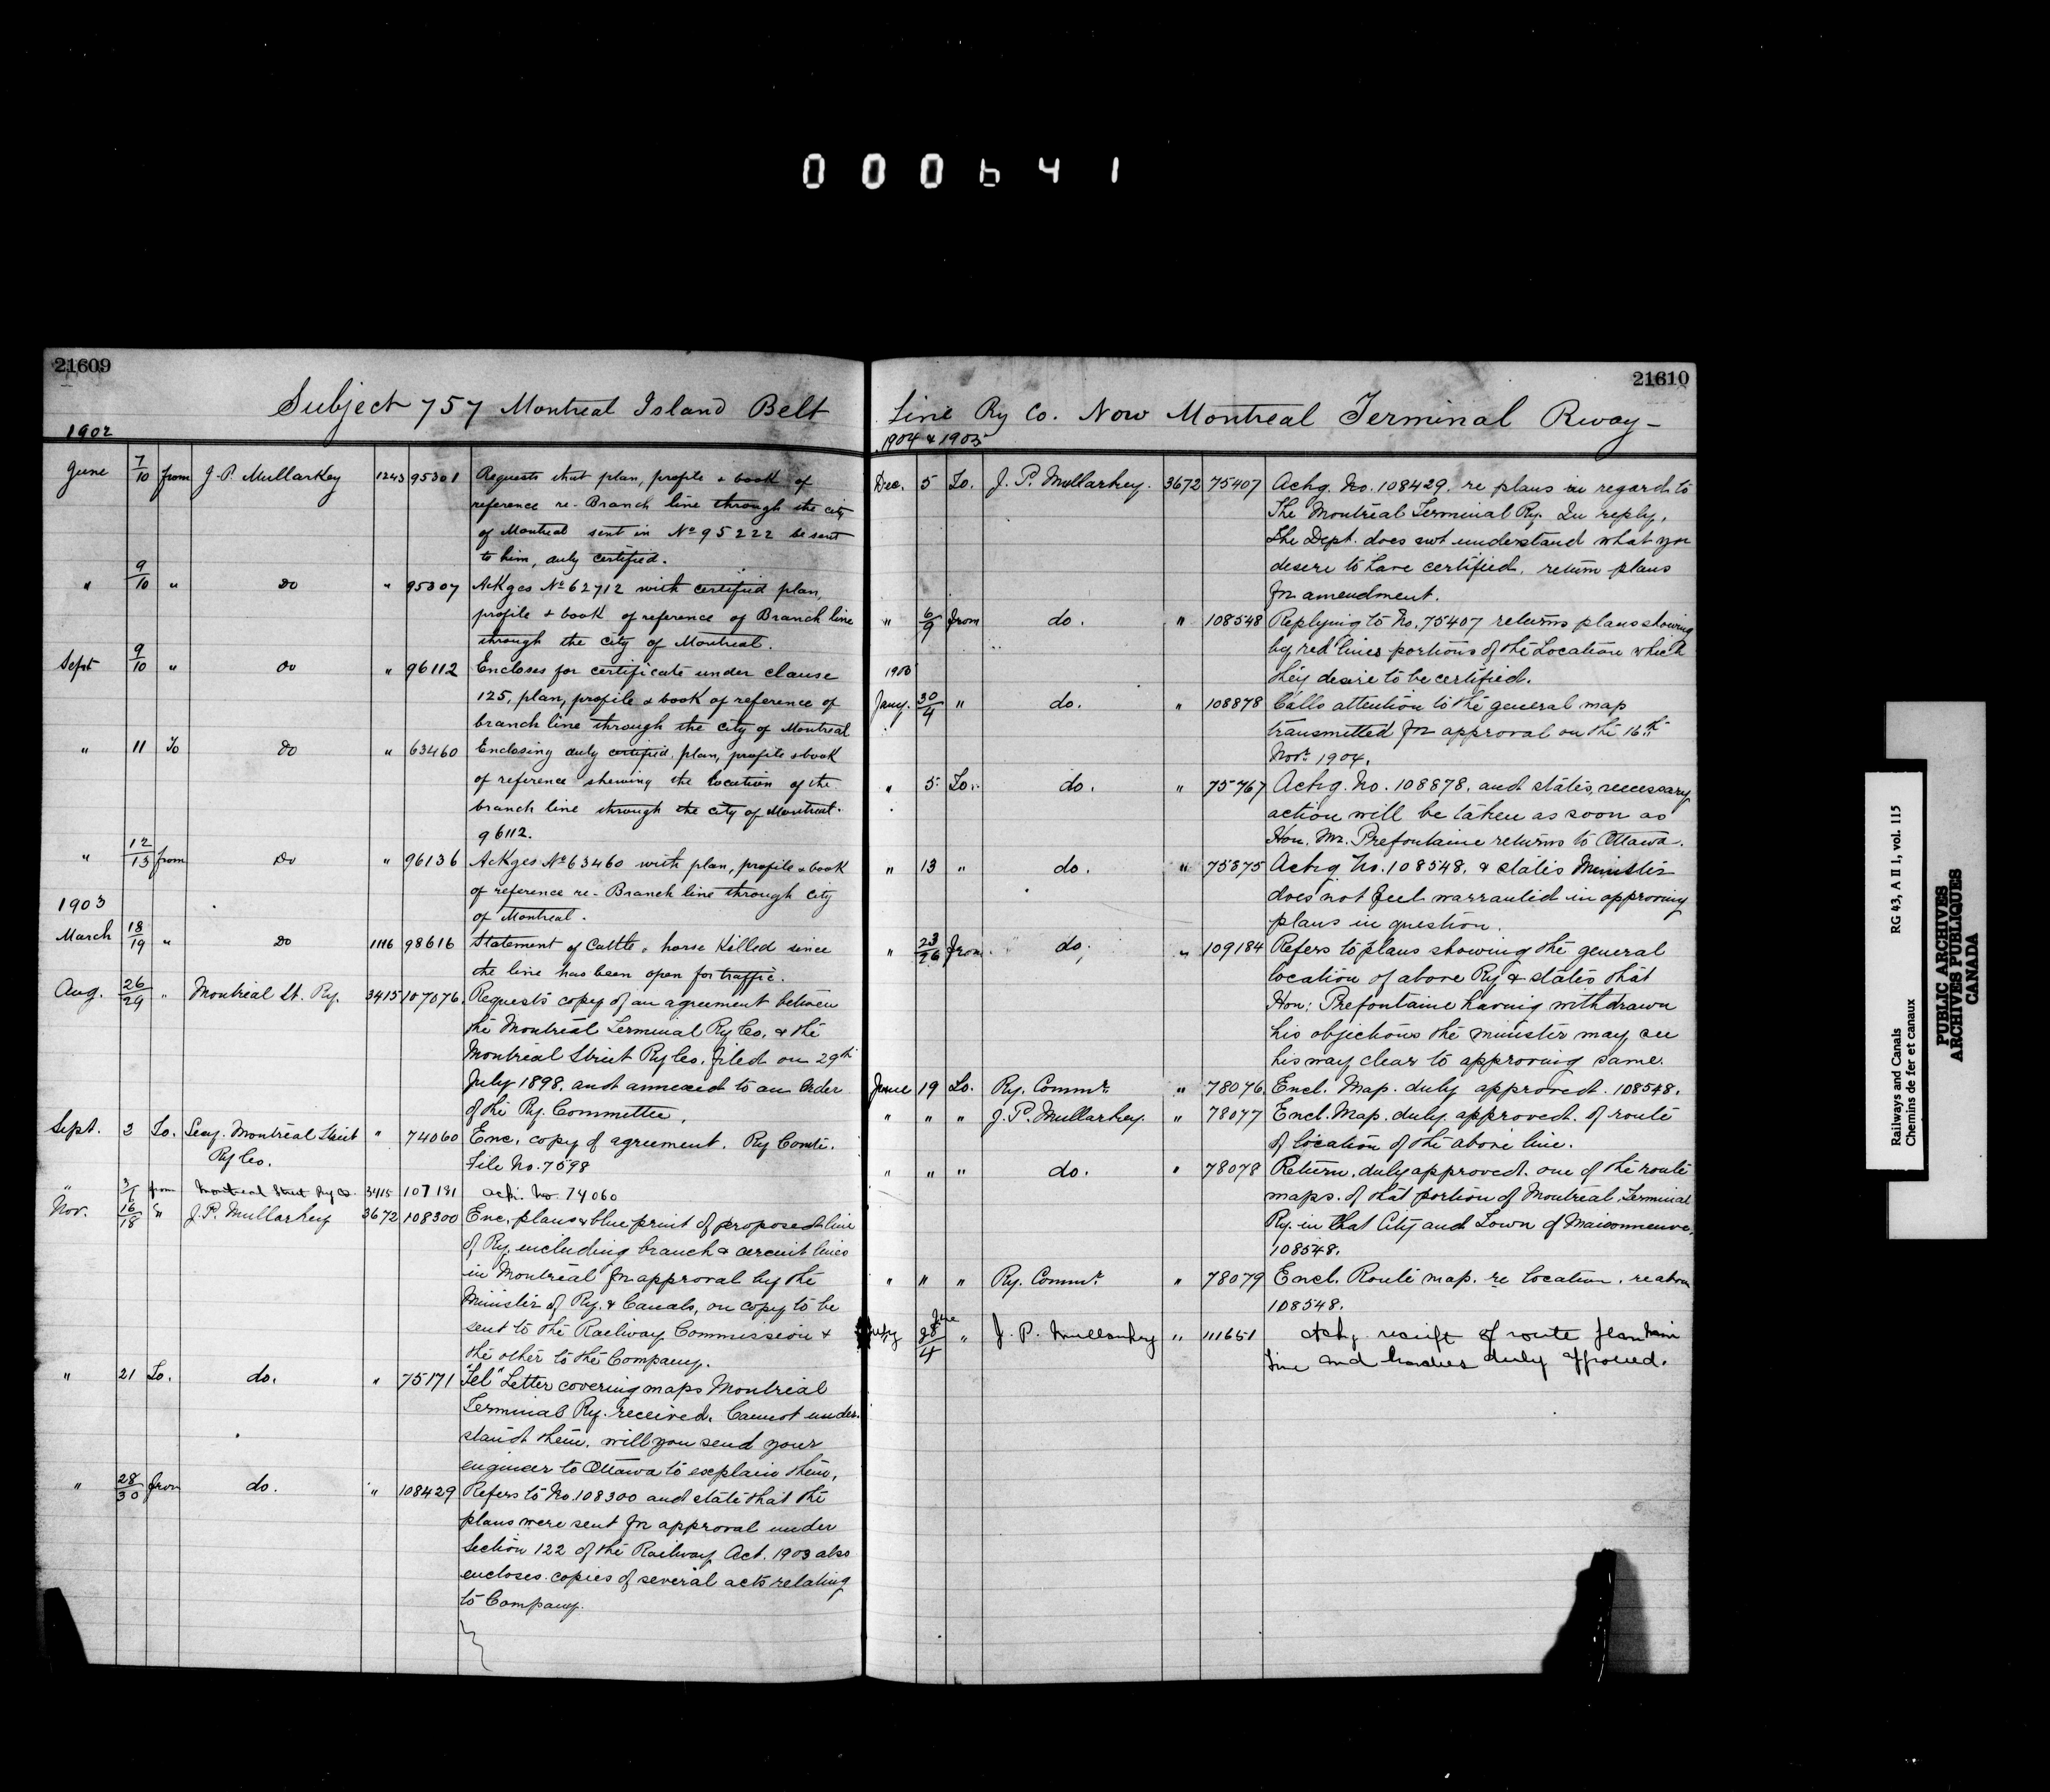 000641
21609
Subject 757 Montreal Island Belt
1902
June 7/10 from J. P. Mullarkey 1243 95301 Requests that plan, profile & book of
reference re- Branch line through the city
of Montreal sent in No 95222 be sent
to him, duly certified.
" 9/10 " Do " 95307 Ackges No 62712 with certified plan,
profile & book of reference of Branch line
through the city of Montreal.
Sept 9/10 " Do " 96112 Encloses for certificate under clause
125, plan, profile & book of reference of
branch line through the city of Montreal
" 11 To Do " 63460 Enclosing duly certified, plan, profile & book
of reference shewing the location of the
branch line through the city of Montreal.
96112.
" 12/13 from Do " 96136 Ackges No 63460 with plan, profile & book
of reference re- Branch line through city
of Montreal.
1903
March 18/19 " Do 1116 98616 Statement of Cattle & horse Killed since
the line has been open for traffic.
Aug. 26/29 " Montreal St. Ry. 3415 107076 Requests copy of an agreement between
the Montreal Terminal Ry Co. & the
Montreal Street Ry Co. filed on 29th
July 1898. and annexed to an Order
of the Ry. Committee.
Sept. 2 To. Secy. Montreal Street " 74060 Enc. copy of agreement. Ry Comte.
Ry Co. File No. 7598
" 3/7 from Montreal Street Ry Co. 3415 107191 Ack. No. 74060
Nov. 16/18 " J. P. Mullarkey 3672 108300 Enc. plans & blue print of proposed line
of Ry. including branch & circuit lines
in Montreal for approval by the
Minister of Ry. & Canals, on copy to be
sent to the Railway Commission &
the other to the Company.
" 21 To. do. " 75171 "Tel" Letter covering maps Montreal
Terminal Ry. received. Cannot under-
stand them. will you send your
engineer to Ottawa to explain them.
" 28/30 from do. " 108429 Refers to No. 108300 and state that the
plans were sent for approval under
Section 122 of the Railway Act. 1903 also
encloses copies of several acts relating
to Company.
21610
Line Ry Co. Now Montreal Terminal Rway-
1904 & 1905
Dec. 5 To. J. P. Mullarkey. 3672 75407 Ackg. No. 108429. re plans in regard to
The Montreal Terminal Ry. In reply,
The Dept. does not understand what you
desire to have certified. return plans
for amendment.
" 6/9 from do. " 108548 Replying to No. 75407 returns plans showing
by red lines portions of the Location which
they desire to be certified.
1905
Jany. 30/4 " do. " 108878 Calls attention to the general map
transmitted for approval on the 16th
Novr. 1904.
" 5 To. do. " 75767 Ackg. No. 108878. and states, necessary
action will be taken as soon as
Hon. Mr. Prefontaine returns to Ottawa.
" 13 " do. " 75875 Ackg No. 108548. & states Minister
does not feel warranted in approving
plans in question.
" 23/26 from do. " 109184 Refers to plans showing the general
location of above Ry & states that
Hon: Prefontaine having withdrawn
his objections the minister may see
his way clear to approving same.
June 19 To. Ry. Commr. " 78076 Encl. Map. duly approved. 108548.
" " " J. P. Mullarkey. " 78077 Encl. Map. duly approved. of route
of location of the above line.
" " " do. " 78078 Return. duly approved. one of the route
maps. of that portion of Montreal Terminal
Ry. in that City and Town of Maisonneuve.
108548.
" " " Ry. Commr. " 78079 Encl. Route map. re location. re above
108548.
July June 28/4 " J. P. Mullarkey " 111651 Ackg. receipt of route plan main
line and branches duly approved.
Railways and Canals RG 43, A II 1, vol. 115
Chemins de fer et canaux
PUBLIC ARCHIVES
ARCHIVES PUBLIQUES
CANADA